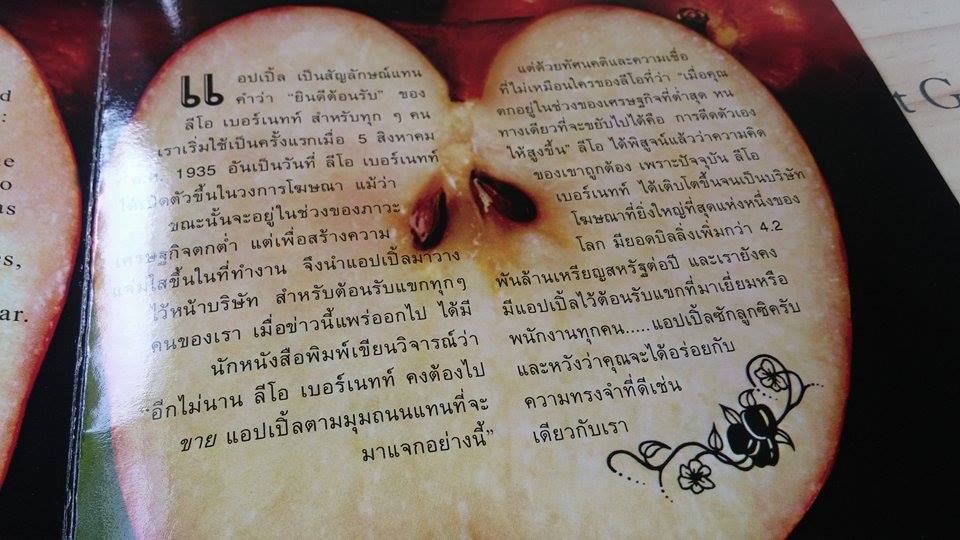 d
:
e
o
as
es,
ar.
แอปเปิ้ล เป็นสัญลักษณ์แทน
คำว่า “ยินดีต้อนรับ” ของ
ลีโอ เบอร์เนทท์ สำหรับทุก ๆ คน
เราเริ่มใช้เป็นครั้งแรกเมื่อ 5 สิงหาคม
ค.ศ. 1935 อันเป็นวันที่ ลีโอ เบอร์เนทท์
ได้เปิดตัวขึ้นในวงการโฆษณา แม้ว่า
ขณะนั้นจะอยู่ในช่วงของภาวะ
เศรษฐกิจตกต่ำ แต่เพื่อสร้างความ
แจ่มใสขึ้นในที่ทำงาน จึงนำแอปเปิ้ลมาวาง
ไว้หน้าบริษัท สำหรับต้อนรับแขกทุกๆ
คนของเรา เมื่อข่าวนี้แพร่ออกไป ได้มี
นักหนังสือพิมพ์เขียนวิจารณ์ว่า
“อีกไม่นาน ลีโอ เบอร์เนทท์ คงต้องไป
ขาย แอปเปิ้ลตามมุมถนนแทนที่จะ
มาแจกอย่างนี้”
แต่ด้วยทัศนคติและความเชื่อ
ที่ไม่เหมือนใครของลีโอที่ว่า “เมื่อคุณ
ตกอยู่ในช่วงของเศรษฐกิจที่ต่ำสุด หน
ทางเดียวที่จะขยับไปได้คือ การดีดตัวเอง
ให้สูงขึ้น” ลีโอ ได้พิสูจน์แล้วว่าความคิด
ของเขาถูกต้อง เพราะปัจจุบัน ลีโอ
เบอร์เนทท์ ได้เติบโตขึ้นจนเป็นบริษัท
โฆษณาที่ยิ่งใหญ่ที่สุดแห่งหนึ่งของ
โลก มียอดบิลลิ่งเพิ่มกว่า 4.2
พันล้านเหรียญสหรัฐต่อปี และเรายังคง
มีแอปเปิ้ลไว้ต้อนรับแขกที่มาเยี่ยมหรือ
พนักงานทุกคน.....แอปเปิ้ลซักลูกซิครับ
และหวังว่าคุณจะได้อร่อยกับ
ความทรงจำที่ดีเช่น
เดียวกับเรา
t G